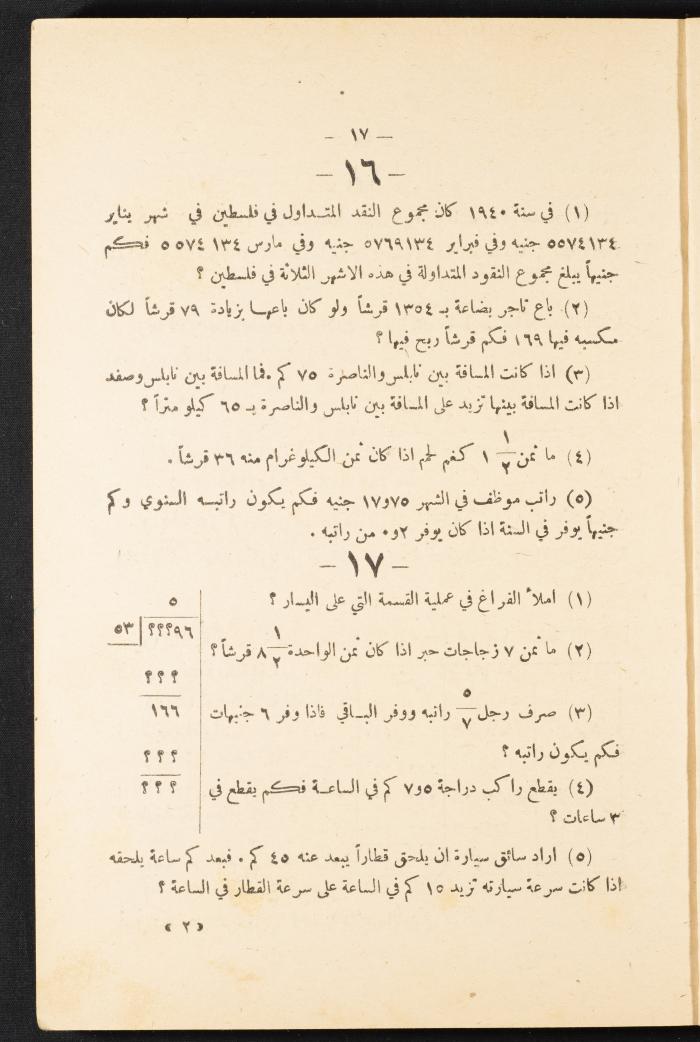 — ١٧ —
— ١٦ —
(١) في سنة ١٩٤٠ كان مجموع النقد المتداول في فلسطين في شهر يناير
٥٥٧٤١٣٤ جنيه وفي فبراير ٥٧٦٩١٣٤ جنيه وفي مارس ١٣٤ ٥٥٧٤ فكم
جنيهاً يبلغ مجموع النقود المتداولة في هذه الاشهر الثلاثة في فلسطين ؟
(٢) باع تاجر بضاعة بـ ١٣٥٤ قرشاً ولو كان باعها بزيادة ٧٩ قرشاً لكان
مكسبه فيها ١٦٩ فكم قرشاً ربح فيها ؟
(٣) اذا كانت المسافة بين نابلس والناصرة ٧٥ كم . فما المسافة بين نابلس وصفد
اذا كانت المسافة بينها تزيد على المسافة بين نابلس والناصرة بـ ٦٥ كيلو متراً ؟
(٤) ما ثمن ١/٢ ١ كغم لحم اذا كان ثمن الكيلوغرام منه ٣٦ قرشاً .
(٥) راتب موظف في الشهر ٧٥و١٧ جنيه فكم يكون راتبه السنوي وكم
جنيهاً يوفر في السنة اذا كان يوفر ٢و٠ من راتبه .
— ١٧ —
(١) املأ الفراغ في عملية القسمة التي على اليسار ؟
٥
٩٦؟؟؟ ٥٣
؟ ؟ ؟
١٦٦
؟ ؟ ؟
؟ ؟ ؟
(٢) ما ثمن ٧ زجاجات حبر اذا كان ثمن الواحدة ١/٢ ٨ قرشاً ؟
(٣) صرف رجل ٥/٧ راتبه ووفر الباقي فاذا وفر ٦ جنيهات
فكم يكون راتبه ؟
(٤) يقطع راكب دراجة ٥و٧ كم في الساعة فكم يقطع في
٣ ساعات ؟
(٥) اراد سائق سيارة ان يلحق قطاراً يبعد عنه ٤٥ كم . فبعد كم ساعة يلحقه
اذا كانت سرعة سيارته تزيد ١٥ كم في الساعة على سرعة القطار في الساعة ؟
« ٢ »